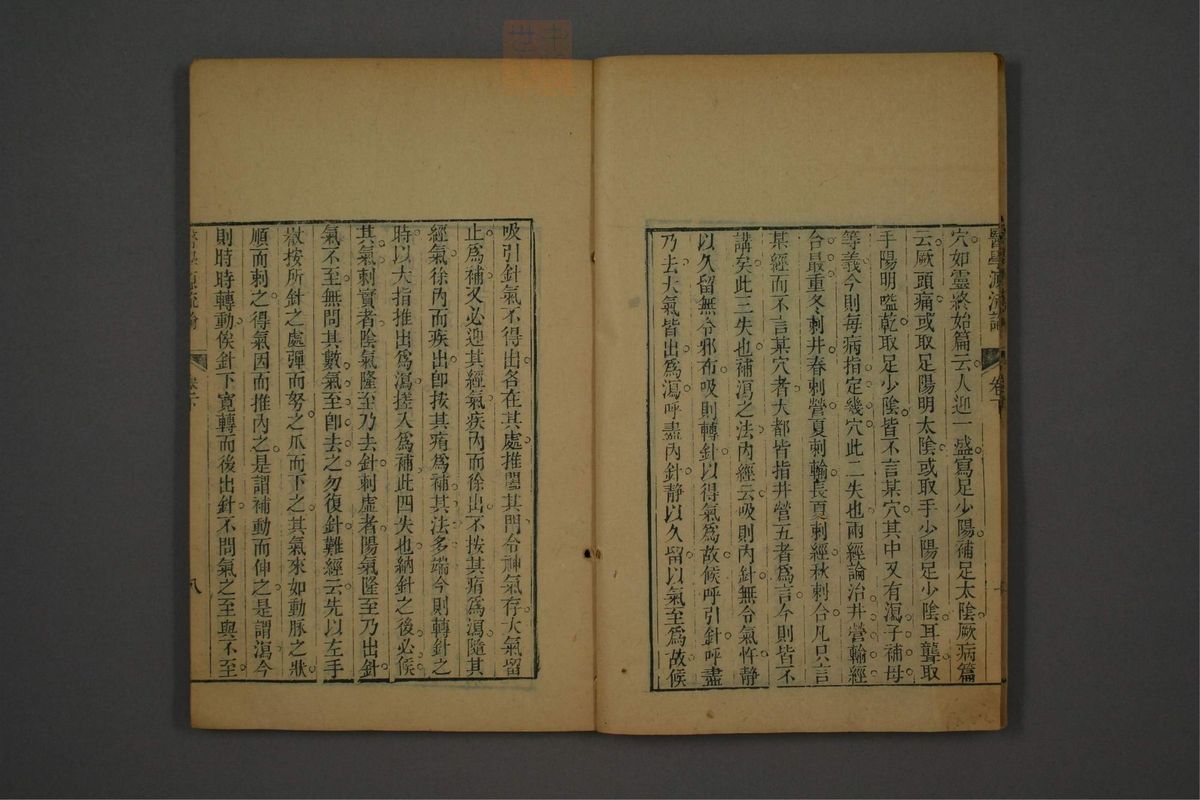 醫學源流論 卷下
穴如靈終始篇云人迎一盛寫足少陽補足太陰厥病篇
云厥頭痛或取足陽明太陰或取手少陽足少陰耳聾取
手陽明嗌乾取足少陰皆不言某穴其中又有瀉子補母
等義今則每病指定幾穴此二失也兩經論治井營輸經
合最重冬刺井春刺營夏刺輸長夏刺經秋刺合凡只言
某經而不言某穴者大都皆指井營五者爲言今則皆不
講矣此三失也補瀉之法內經云吸則內針無令氣忤靜
以久留無令邪布吸則轉針以得氣爲故候呼引針呼盡
乃去大氣皆出爲瀉呼盡內針靜以久留以氣至爲故候
吸引針氣不得出各在其處推闔其門令神氣存大氣留
止爲補又必迎其經氣疾內而徐出不按其痏爲瀉隨其
經氣徐內而疾出卽按其痏爲補其法多端今則轉針之
時以大指推出爲瀉搓入爲補此四失也納針之後必候
其氣刺實者陰氣隆至乃去針刺虛者陽氣隆至乃出針
氣不至無問其數氣至卽去之勿復針難經云先以左手
壓按所針之處彈而努之爪而下之其氣來如動脉之狀
順而刺之得氣因而推內之是謂補動而伸之是謂瀉今
則時時轉動俟針下寬轉而後出針不問氣之至與不至
醫學源流論 卷下 八